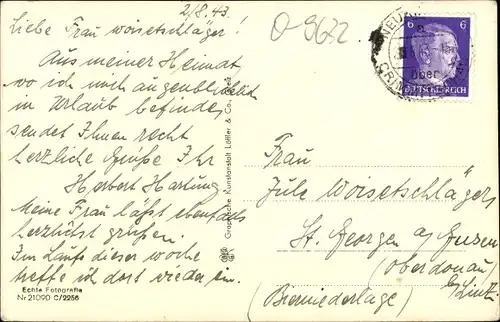 2/8.43
O 9622
Liebe Frau Woisetschläger!
Aus meiner Heimat
wo ich mich augenblicklich
in Urlaub befinde,
sendet Ihnen recht
herzliche Grüße Ihr
Herbert Hartung
Meine Frau läßt ebenfalls
herzlichst grüßen.
Im Laufe dieser Woche
treffe ich dort wieder ein.
Echte Fotografie
Nr. 21090 C/2256
Graphische Kunstanstalt Löffler & Co.
6 6
DEUTSCHES REICH
über
Frau
Jule Woisetschläger
St. Georgen a/ Gusen
(Oberdonau)
b/Linz.
(Bierniederlage)